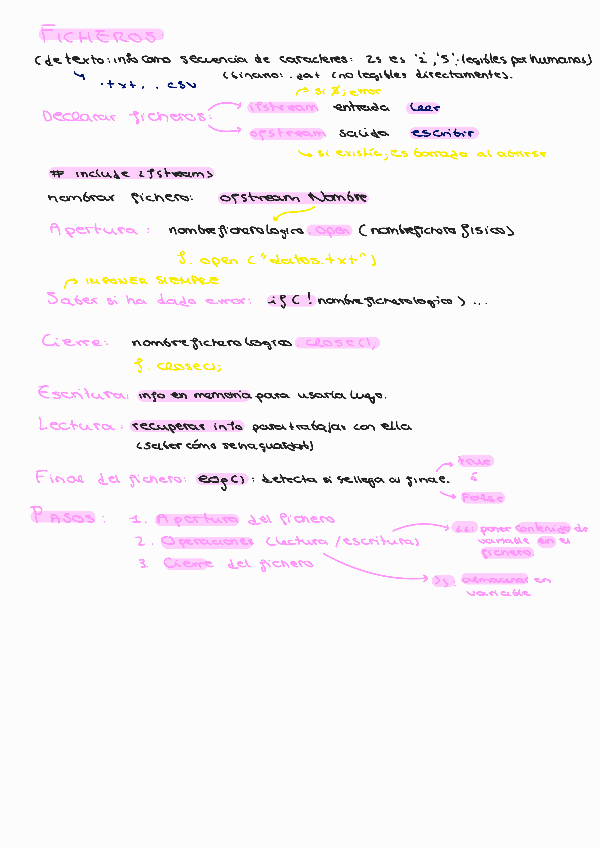 FICHEROS
(de texto: info como secuencia de caracteres: 25 es '2', '5': legibles por humanos)
↳ .txt, . csv
(binario: .dat (no legibles directamente).
→ si ∄; error
Declarar ficheros:
ifstream entrada leer
ofstream salida escribir
↳ si existía, es borrado al abrirse
# include <fstream>
nombrar fichero: ofstream Nombre
Apertura: nombreficherologico.open (nombrefichero físico)
f. open ("datos.txt")
→ IMPONER SIEMPRE
Saber si ha dado error: if (! nombreficherologico) ...
Cierre: nombreficherologico.close();
f. close();
Escritura: info en memoria para usarla luego.
Lectura: recuperar info para trabajar con ella
(saber cómo se ha guardado)
true
Final del fichero: eof(): detecta si se llega al final.
False
PASOS: 1. Apertura del fichero
2. Operaciones (lectura/escritura)
<<: poner contenido de
variable en el
fichero.
3. Cierre del fichero
>>. almacenar en
variable